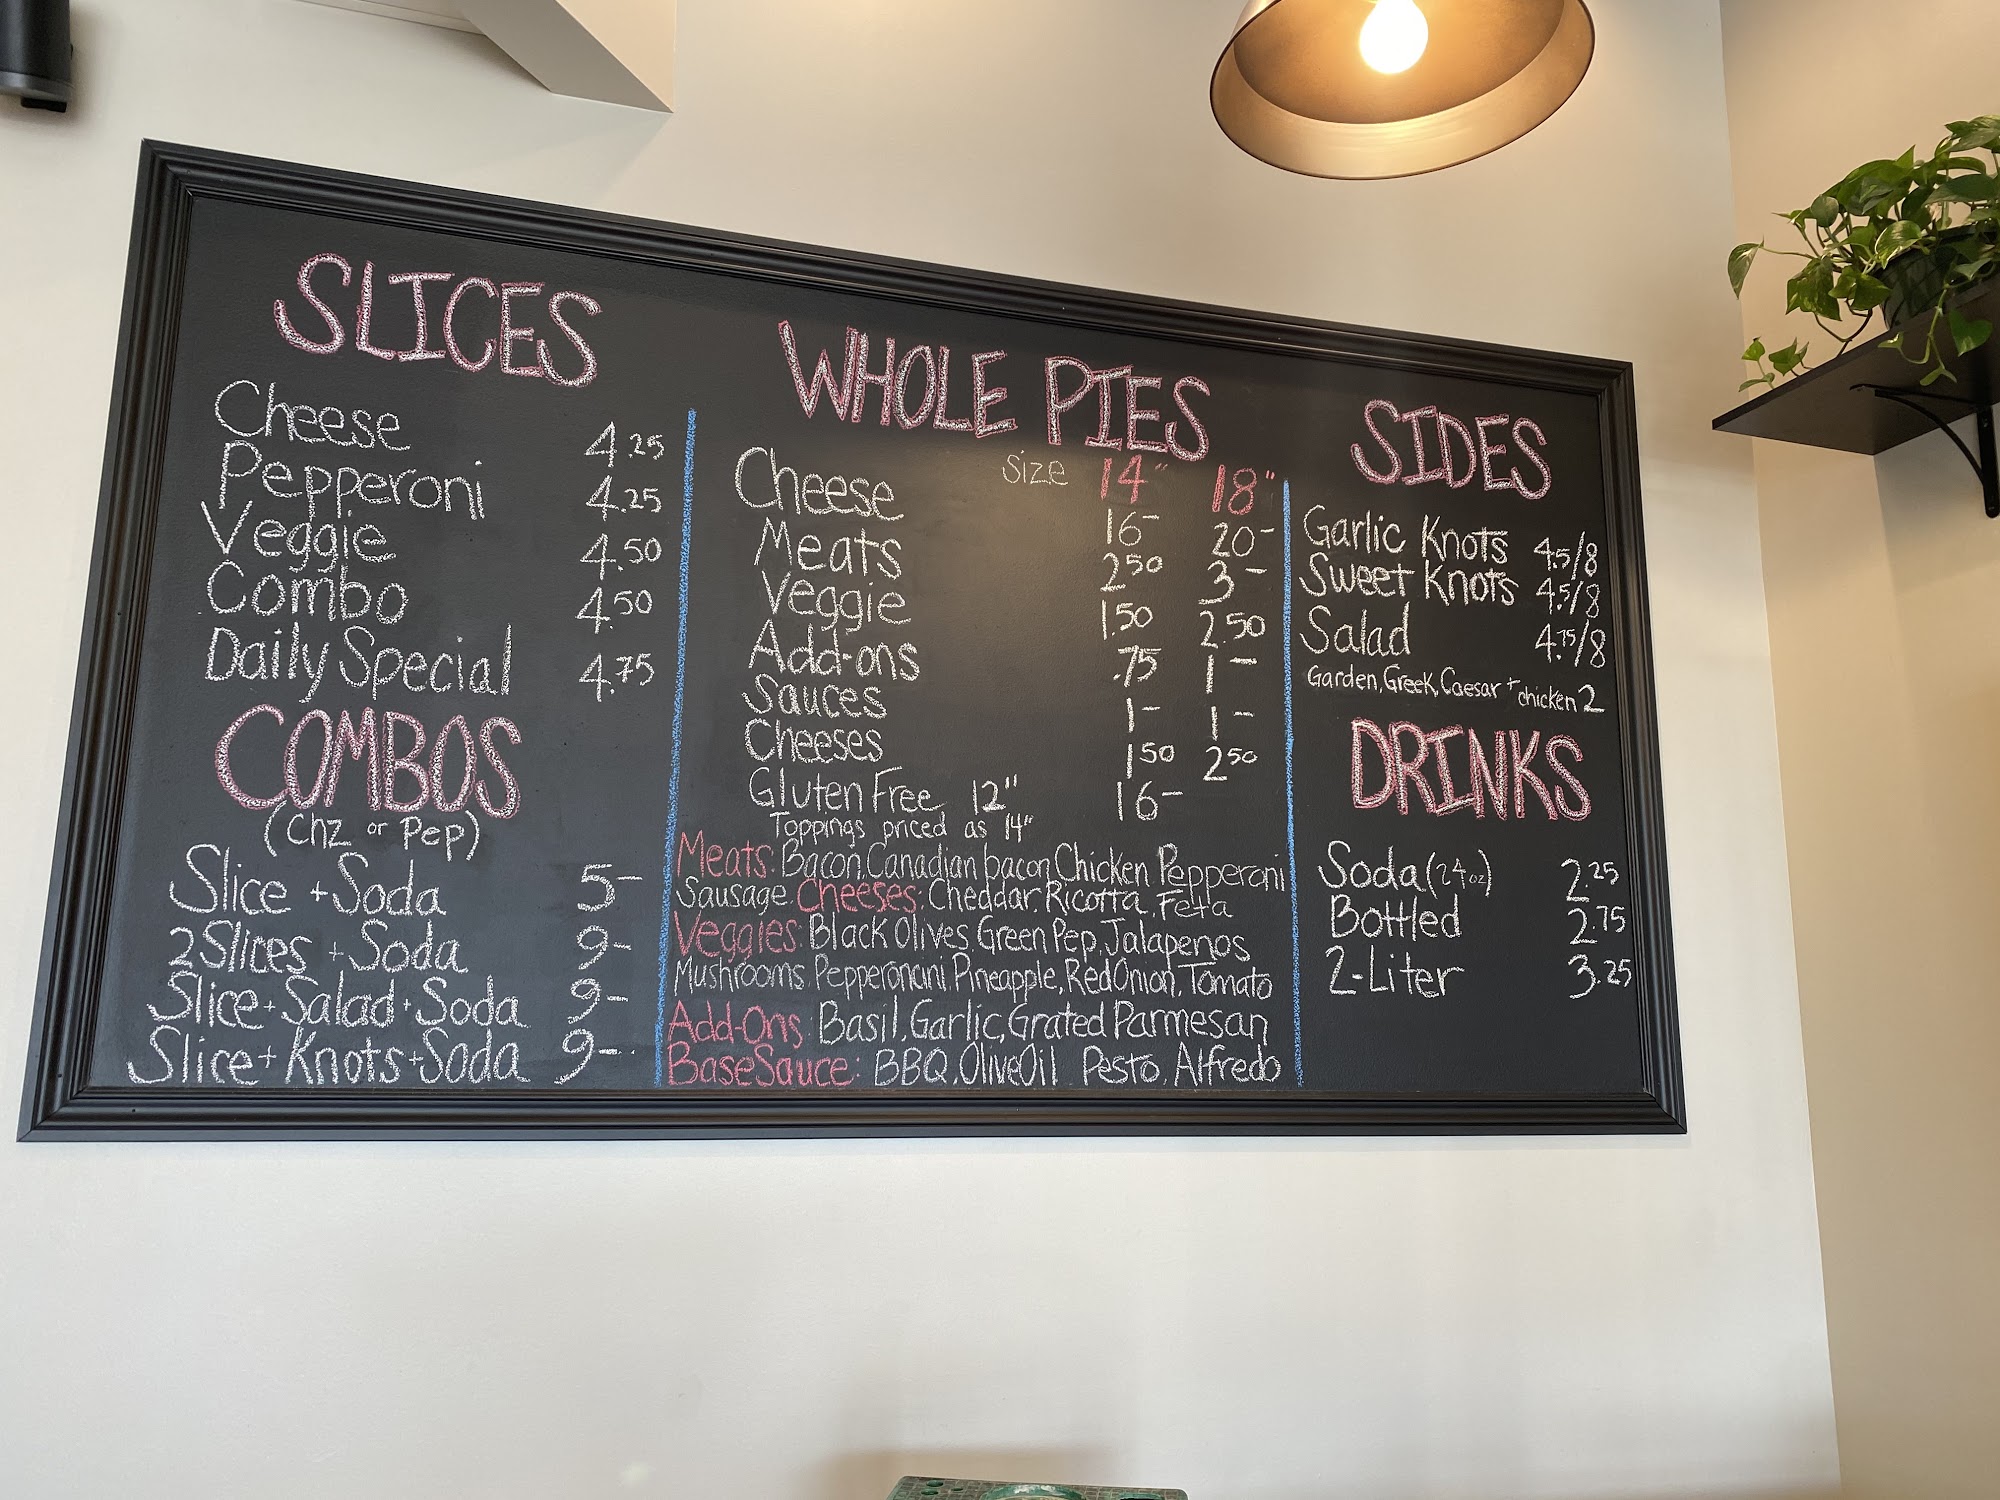 SLICES
Cheese 4.25
Pepperoni 4.25
Veggie 4.50
Combo 4.50
Daily Special 4.75
COMBOS
(Chz or Pep)
Slice + Soda 5-
2 Slices + Soda 9-
Slice + Salad + Soda 9-
Slice + Knots + Soda 9-
WHOLE PIES
Size 14" 18"
Cheese 16- 20-
Meats 2 50 3-
Veggie 1.50 2.50
Add-ons .75 1-
Sauces 1- 1-
Cheeses 1 50 2 50
Gluten Free 12" 16-
Toppings priced as 14"
Meats: Bacon, Canadian bacon, Chicken, Pepperoni
Sausage. Cheeses: Cheddar, Ricotta, Feta
Veggies: Black Olives, Green Pep, Jalapenos
Mushrooms, Pepperoncini, Pineapple, Red Onion, Tomato
Add-Ons: Basil, Garlic, Grated Parmesan
Base Sauce: BBQ, Olive Oil Pesto, Alfredo
SIDES
Garlic Knots 4.5/8
Sweet Knots 4.5/8
Salad 4.75/8
Garden, Greek, Caesar + chicken 2
DRINKS
Soda (24oz) 2.25
Bottled 2.75
2-Liter 3.25